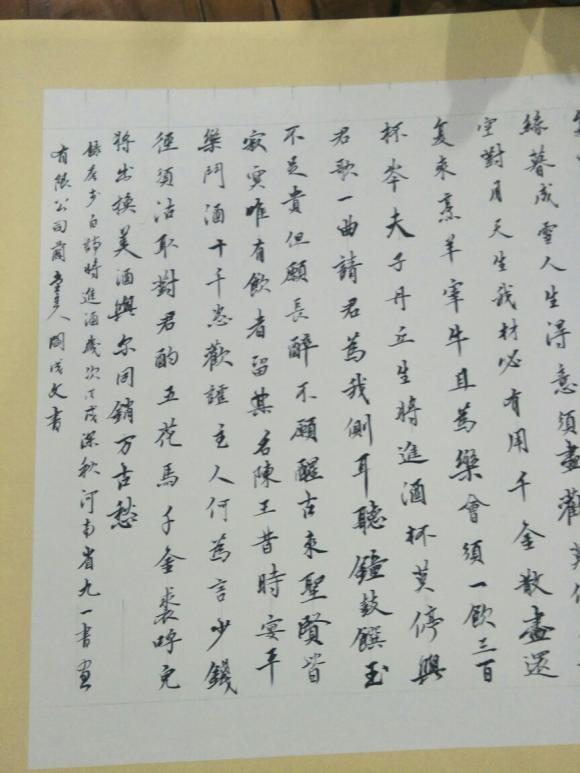 絲暮成雪人生得意須盡歡莫使
空對月天生我材必有用千金散盡還
复來烹羊宰牛且為樂會須一飲三百
杯岑夫子丹丘生將進酒杯莫停與
君歌一曲請君為我側耳聽鐘鼓饌玉
不足貴但願長醉不願醒古來聖賢皆
寂寞唯有飲者留其名陳王昔時宴平
樂鬥酒十千恣歡謔主人何為言少錢
徑須沽取對君酌五花馬千金裘呼兒
將出換美酒與尔同銷万古愁
錄唐李白詩將進酒歲次戊戌深秋河南省九一書画
有限公司蘭主人文書